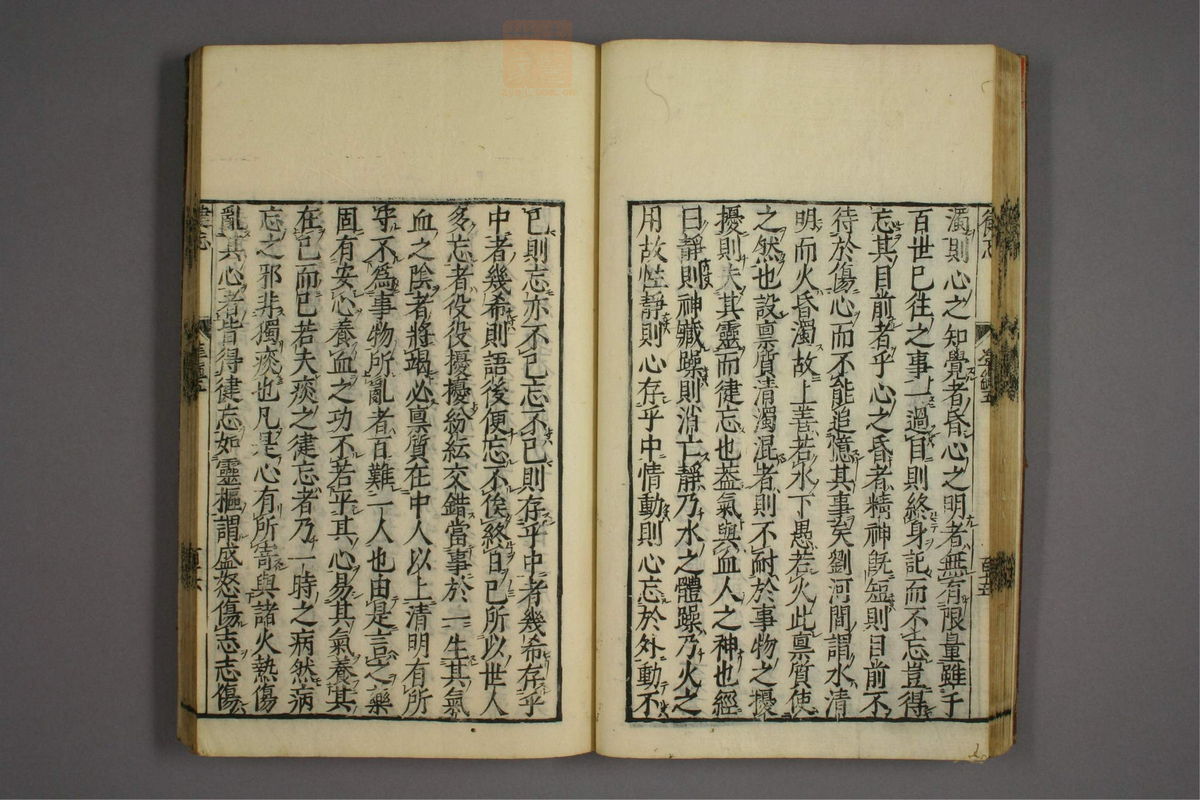 濁則心之知覺者昏心之明者無有限量雖千
百世已往之事一過目則終身記而不忘豈得
忘其目前者乎心之昏者精神既短則目前不
待於傷心而不能追憶其事矣劉河間謂水清
明而火昏濁故上善若水下愚若火此稟質使
之然也設稟質清濁混者則不耐於事物之擾
擾則失其靈而健忘也蓋氣與血人之神也經
曰靜則神藏躁則消亡靜乃水之體躁乃火之
用故性靜則心存乎中情動則心忘於外動不
已則忘亦不已忘不已則存乎中者幾希存乎
中者幾希則語後便忘不俟終日已所以世人
多忘者役役擾擾紛紜交錯當事於一生其氣
血之陰者將竭必稟質在中人以上清明有所
守不為事物所亂者百難一人也由是言之藥
固有安心養血之功不若平其心易其氣養其
在己而已若夫痰之健忘者乃一時之病然病
忘之邪非獨痰也凡是心有所寄與諸火熱傷
亂其心者皆得健忘如靈樞謂盛怒傷志志傷
健忘